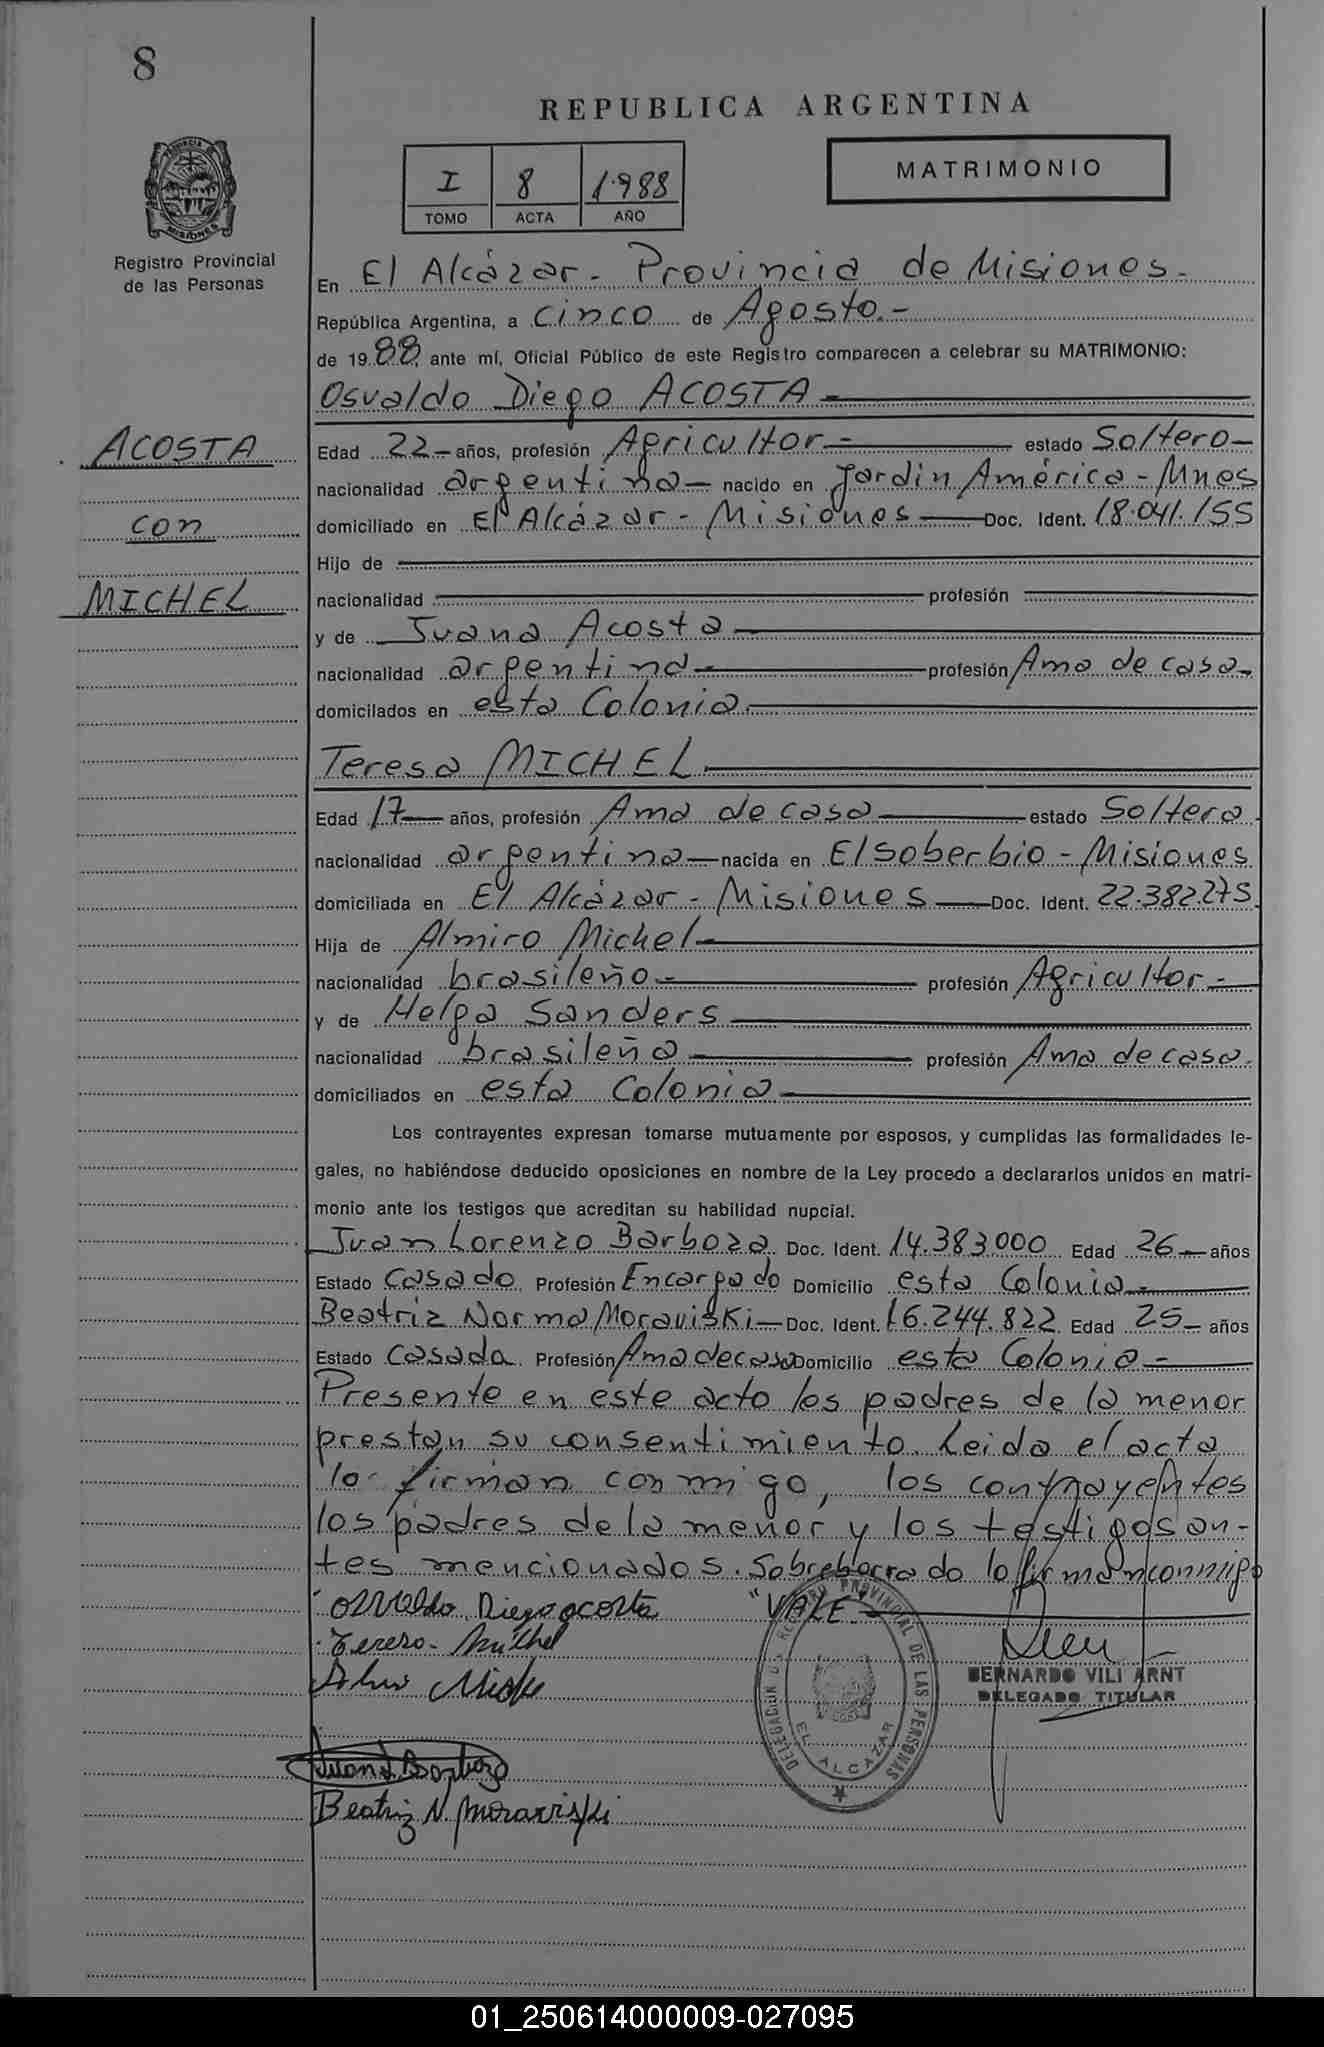 8
REPUBLICA ARGENTINA
I 8 1.988
TOMO ACTA AÑO
MATRIMONIO
PROVINCIA DE MISIONES
Registro Provincial
de las Personas
En El Alcázar - Provincia de Misiones.-
República Argentina, a cinco de Agosto.-
de 1988, ante mí, Oficial Público de este Registro comparecen a celebrar su MATRIMONIO:
Osvaldo Diego ACOSTA
ACOSTA
con
MICHEL
Edad 22 años, profesión Agricultor.- estado Soltero
nacionalidad argentina nacido en Jardín América - Mnes
domiciliado en El Alcázar - Misiones Doc. Ident. 18.041.155
Hijo de
nacionalidad profesión
y de Juana Acosta
nacionalidad argentina.- profesión Ama de casa.
domicilados en esta Colonia.
Teresa MICHEL
Edad 17 años, profesión Ama de casa estado Soltera
nacionalidad argentina nacida en El Soberbio - Misiones
domiciliada en El Alcázar - Misiones Doc. Ident. 22.382.275
Hija de Almiro Michel
nacionalidad brasileño.- profesión Agricultor.-
y de Helga Sanders
nacionalidad brasileña profesión Ama de casa.
domiciliados en esta Colonia
Los contrayentes expresan tomarse mutuamente por esposos, y cumplidas las formalidades le-
gales, no habiéndose deducido oposiciones en nombre de la Ley procedo a declararlos unidos en matri-
monio ante los testigos que acreditan su habilidad nupcial.
Juan Lorenzo Barboza Doc. Ident. 14.383.000 Edad 26 años
Estado Casado Profesión Encargado Domicilio esta Colonia.
Beatriz Norma Moraviski Doc. Ident. 16.244.822 Edad 25 años
Estado Casada Profesión Ama de casa Domicilio esta Colonia.-
Presente en este acto los padres de la menor
prestan su consentimiento. Leida el acta
la firman conmigo, los contrayentes
los padres de la menor y los testigos an-
tes mencionados. Sobreborrado la firman conmigo
"VALE"
Osvaldo Diego acosta
Tereza Michel
Michel
Juan L Barboza
Beatriz N. Moraviski
DELEGACION DE REGISTRO PROVINCIAL DE LAS PERSONAS
EL ALCAZAR
BERNARDO VILI ARNT
DELEGADO TITULAR
01_250614000009-027095